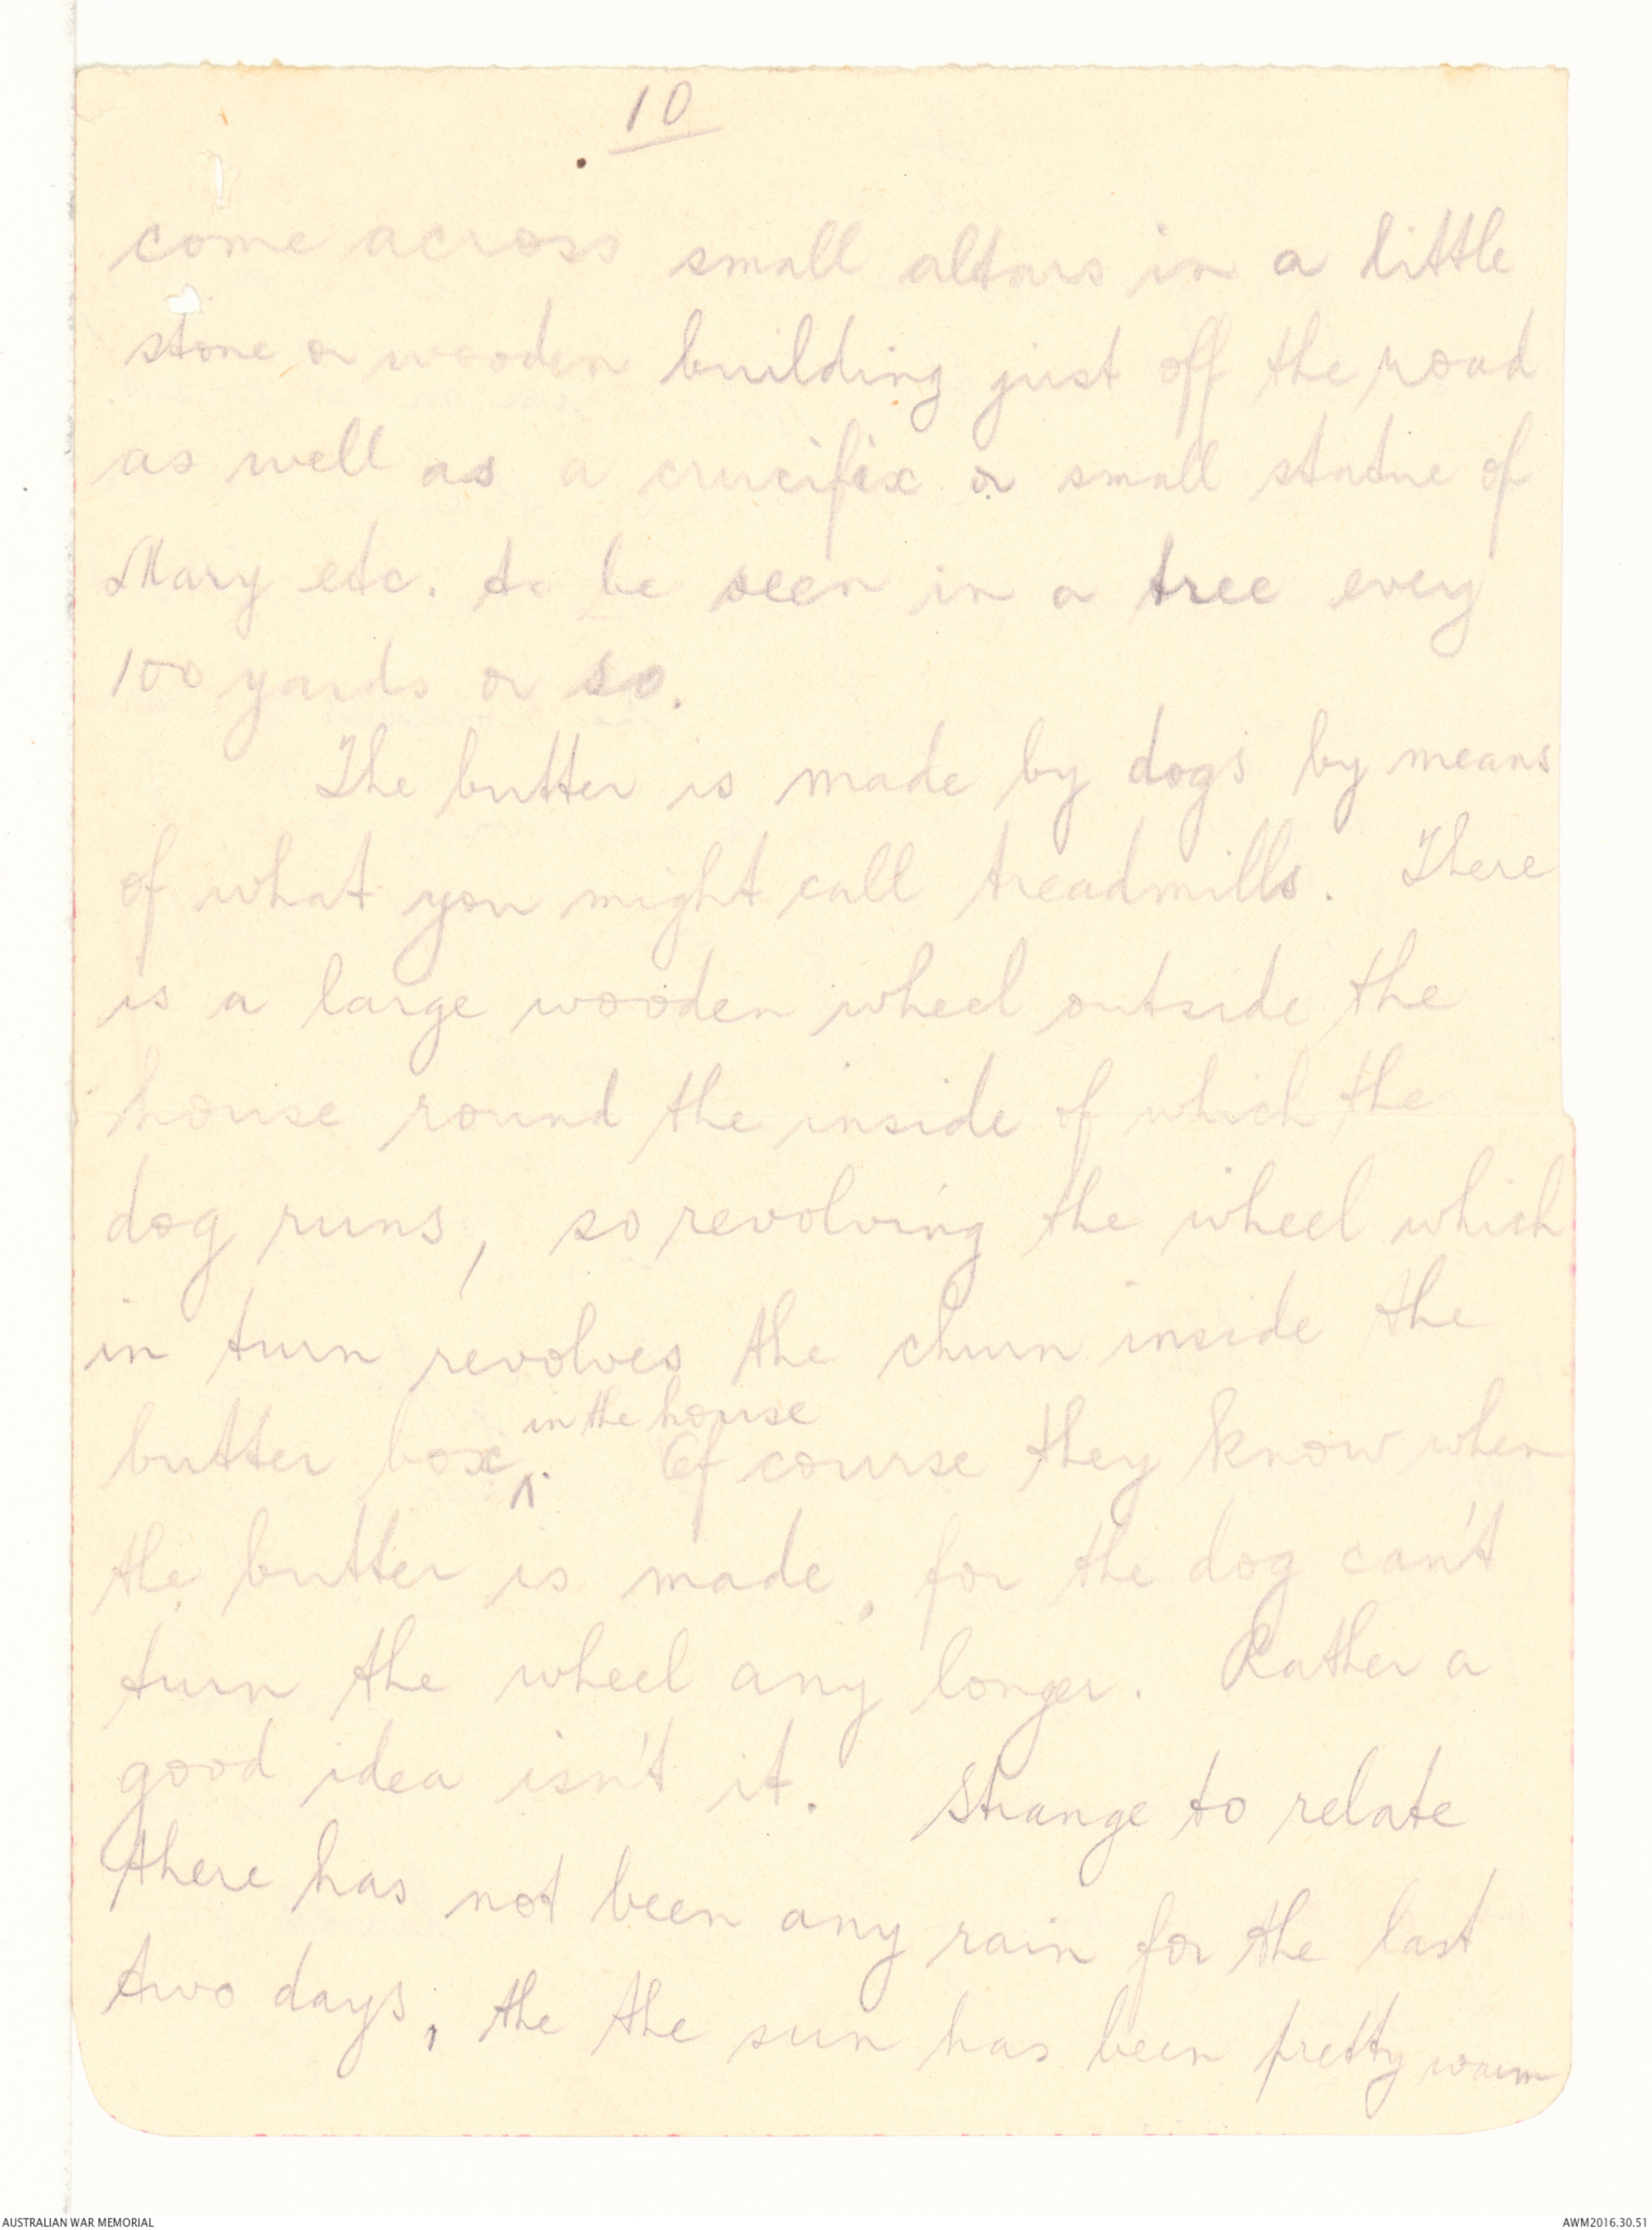 10
come across small altars in a little
stone or wooden building just off the road
as well as a crucifix or small statue of
Mary etc. to be seen in a tree every
100 yards or so.
The butter is made by dogs by means
of what you might call treadmills. There
is a large wooden wheel outside the
house round the inside of which the
dog runs, so revolving the wheel which
in turn revolves the churn inside the
in the house
butter box ^. Of course they know when
the butter is made, for the dog can't
turn the wheel any longer. Rather a
good idea isn't it. Strange to relate
there has not been any rain for the last
two days, the the sun has been pretty warm
AUSTRALIAN WAR MEMORIAL
AWM2016.30.51